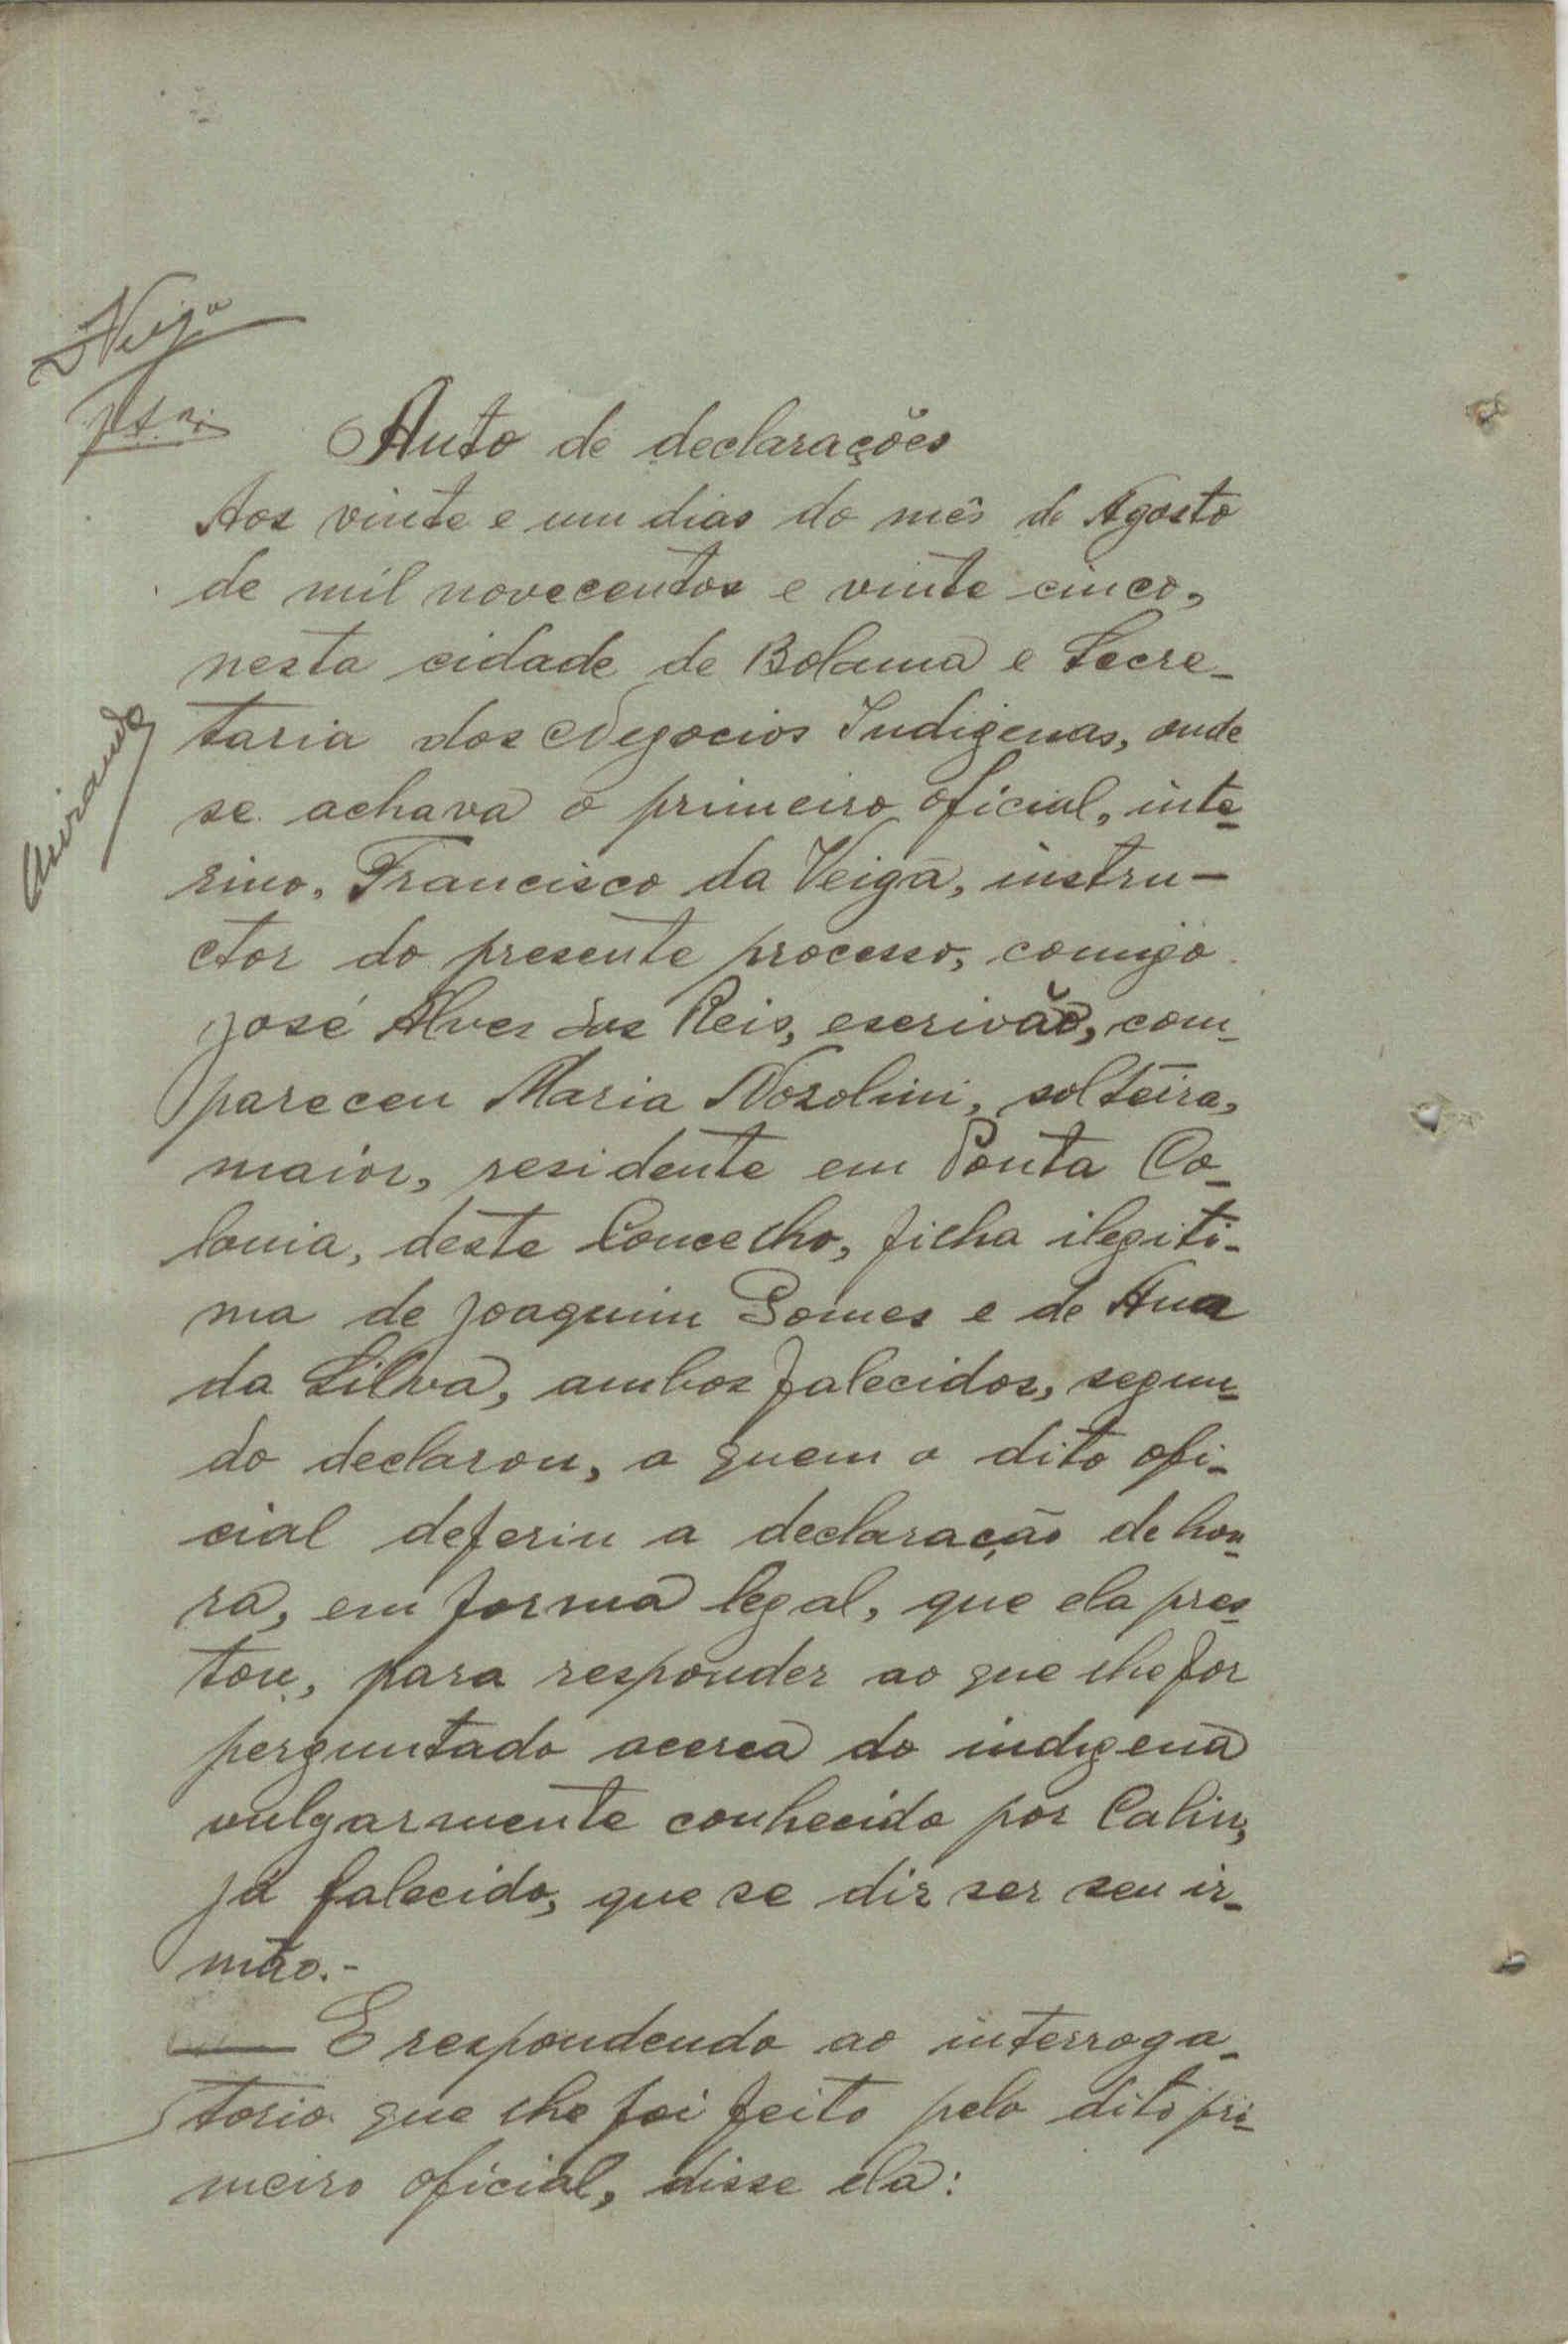 Veiga
Auto de declarações
Aos vinte e um dias do mês de Agosto
de mil novecentos e vinte cinco,
nesta cidade de Bolama e Secre-
taria dos Negocios Indigenas, onde
se achava o primeiro oficial, inte-
rino, Francisco da Veiga, instru-
ctor do presente processo, comigo
José Alves dos Reis, escrivão, com-
pareceu Maria Nozolini, solteira,
maior, residente em Ponta Co-
lonia, deste Concelho, filha ilegiti-
ma de Joaquim Gomes e de Ana
da Silva, ambos falecidos, segun-
do declarou, a quem o dito ofi-
cial deferiu a declaração de hon-
ra, em forma legal, que ela pres-
tou, para responder ao que lhe for
perguntado acerca do indigena
vulgarmente conhecido por Calin,
já falecido, que se diz ser seu ir-
mão.-
E respondendo ao interroga-
torio que lhe foi feito pelo dito pri-
meiro oficial, disse ela: